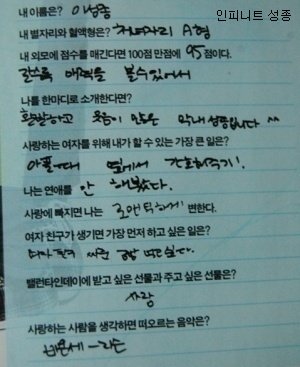 인피니트 성종
내 이름은? 이성종
내 별자리와 혈액형은? 처녀자리 A형
내 외모에 점수를 매긴다면 100점 만점에 95점이다.
갈수록 매력을 볼수있어서
나를 한마디로 소개한다면?
활발하고 웃음이 많은 막내 성종입니다 ^^
사랑하는 여자를 위해 내가 할 수 있는 가장 큰 일은?
아플때 옆에서 간호해주기!
나는 연애를 안 해봤다.
사랑에 빠지면 나는 로맨틱하게 변한다.
여자 친구가 생기면 가장 먼저 하고 싶은 일은?
여자친구 싶다.
밸런타인데이에 받고 싶은 선물과 주고 싶은 선물은?
사랑
사랑하는 사람을 생각하면 떠오르는 음악은?
비욘세 - 리슨